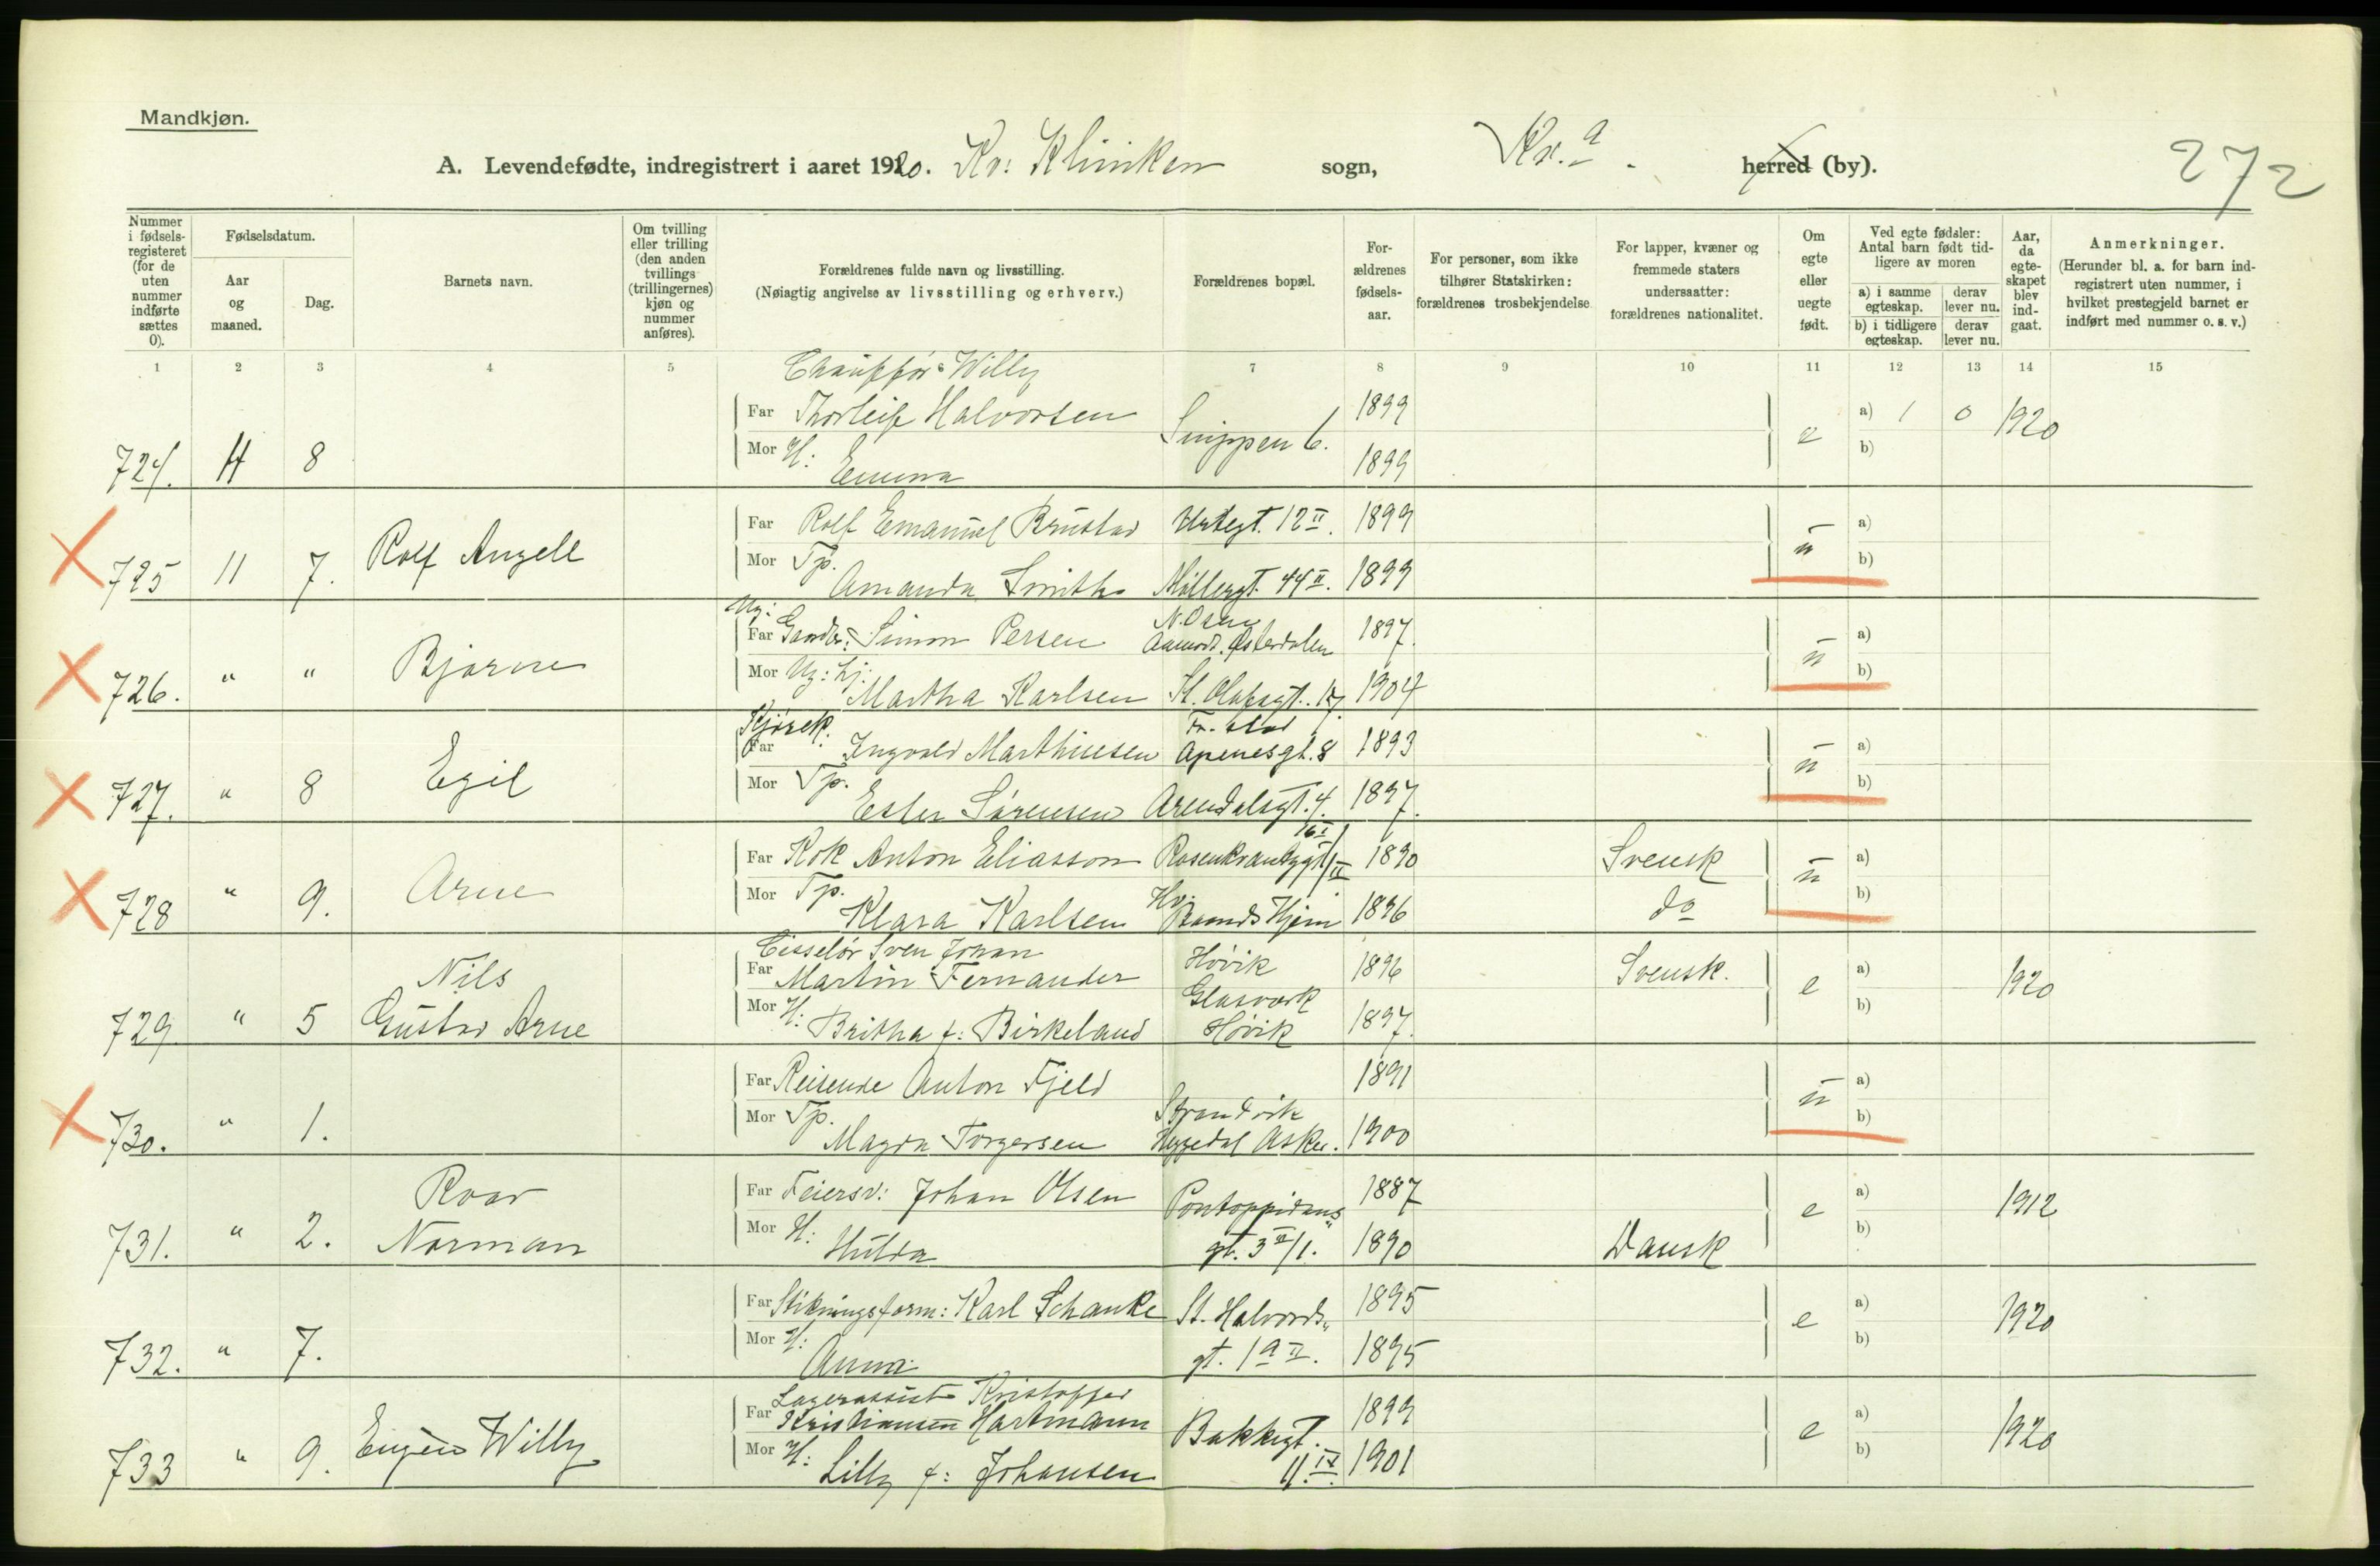 Mandkjøn.
A. Levendefødte, indregistrert i aaret 1920. Kv: Klinikken sogn, Kr.a. herred (by).
272
Nummer i fødsels-registeret (for de uten nummer indførte sættes 0).
Fødselsdatum.
Aar og maaned.
Dag.
Barnets navn.
Om tvilling eller trilling (den anden tvillings (trillingernes) kjøn og nummer anføres).
Forældrenes fulde navn og livsstilling.
(Nøiagtig angivelse av livsstilling og erhverv.)
Forældrenes bopæl.
For-ældrenes fødsels-aar.
For personer, som ikke tilhører Statskirken: forældrenes trosbekjendelse
For lapper, kvæner og fremmede staters undersaatter: forældrenes nationalitet.
Om egte eller uegte født.
Ved egte fødsler: Antal barn født tid-ligere av moren
a) i samme egteskap. derav lever nu.
b) i tidligere egteskap. derav lever nu.
Aar, da egte-skapet blev ind-gaat.
Anmerkninger.
(Herunder bl. a. for barn ind-registrert uten nummer, i hvilket prestegjeld barnet er indført med nummer o. s. v.)
1 2 3 4 5 7 8 9 10 11 12 13 14 15
Chauffør Willy
Far Thorleif Halvorsen 1899 a) 1 0 1920
724. 11 8 Mor H: Emma Snippen 6. 1899 e b)
Far Rolf Emanuel Brustad Urtegt. 12 II. 1899 a)
725 11 7. Rolf Angell Mor Tp. Amanda Smith Møllergt. 44 II. 1899 u b)
Ug: Far Simon Persen N. Osen Østerdalen 1897. a)
726. " " Bjarne Mor Ug: Martha Karlsen St. Olafsgt. 17. 1904 u b)
Far Ingvald Marthinsen Fr. stad Apenesgt. 8 1893 a)
727. " 8 Egil Mor Tp. Ester Sørensen Arendalsgt. 4. 1897. u b)
Far Kok Anton Eliasson Rosenkrantzgt. 1890 Svensk a)
728 " 9. Arne Mor Tp. Klara Karlsen Hjem 1896 do u b)
Ciselør Sven Johan
Far Martin Fernander Høvik 1896 Svensk. a) 1920
729 " 5 Nils Gustav Arne Mor H: Britha f: Birkeland Glasværk Høvik 1897. e b)
Far Reisende Anton Fjeld 1891 a)
730. " 1. Mor Tp. Magda Torgersen Strandvik Asker. 1900 u b)
Far Feiersv: Johan Olsen Pontoppidans 1887 a) 1912
731. " 2. Roar Norman Mor H: Hulda gt. 3 II/1. 1890 Dansk e b)
Far Stikningsform: Karl Schanke St. Halvards 1895 a) 1920
732. " 7. Mor H: Anna gt. 1 a II. 1895 e b)
Lagerassist. Kristoffer
Far Kristiansen Hartmann Bakkegt. 1899 a) 1920
733 " 9. Eugen Willy Mor H: Lilly f: Johansen 11. IV. 1901 e b)